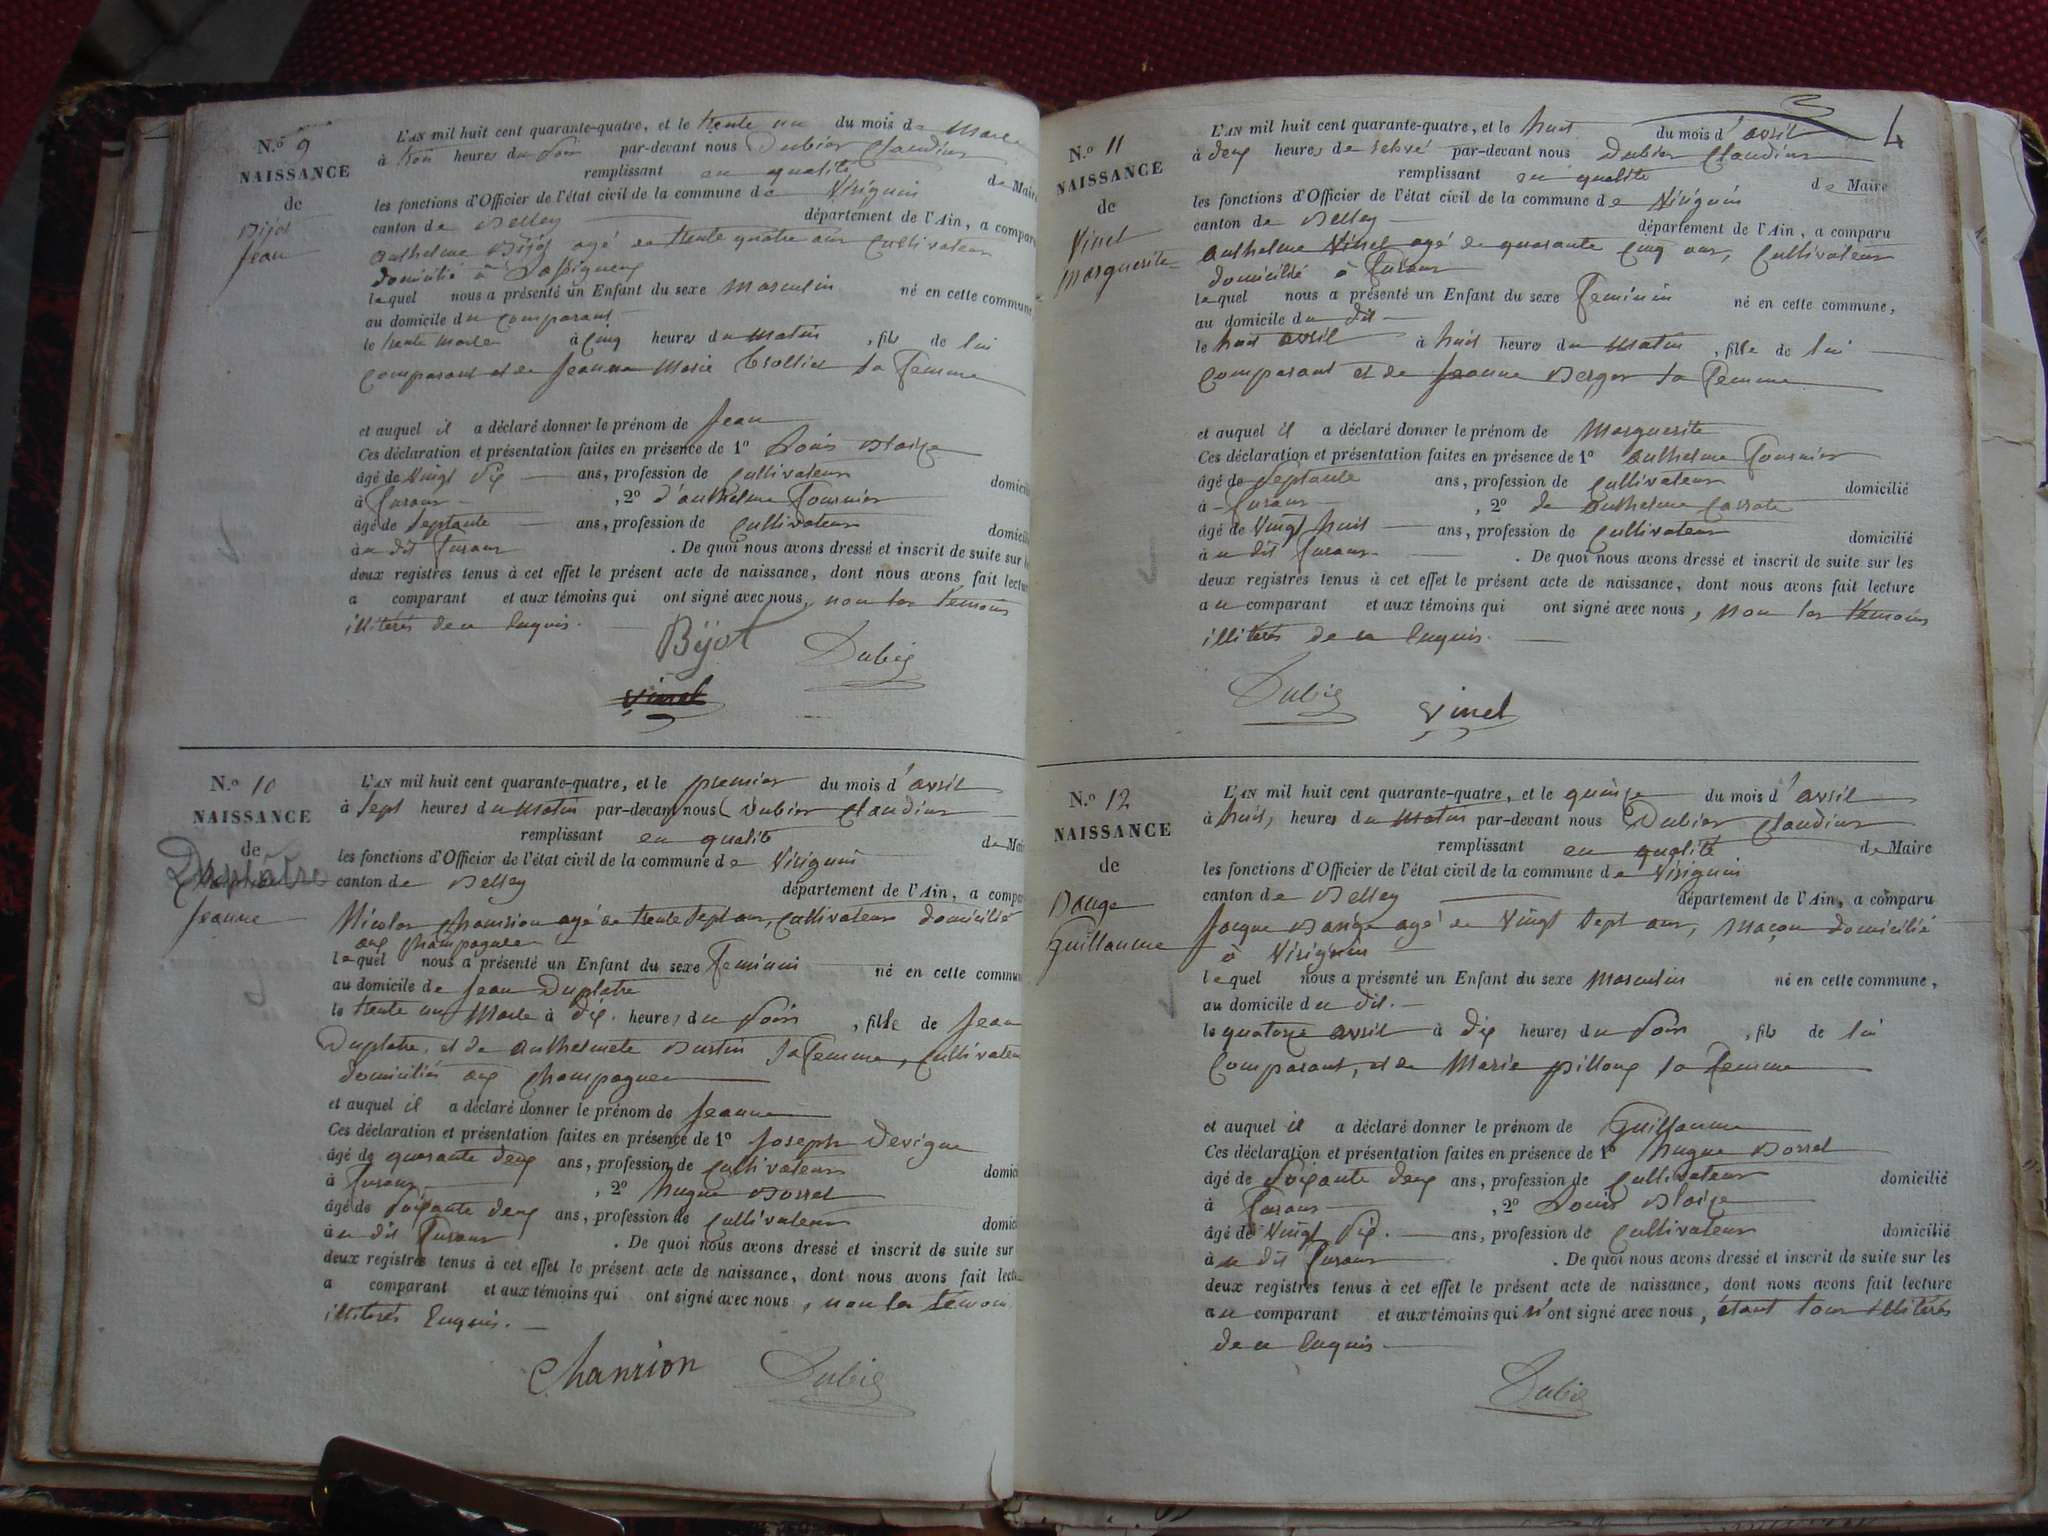 N.º 9
NAISSANCE
de
Bijot
Jean
L'AN mil huit cent quarante-quatre, et le trente un du mois de Mars
à trois heures du Soir par-devant nous Dubier Claudius
remplissant en qualité de Maire
les fonctions d'Officier de l'état civil de la commune de Virignin
canton de Belley département de l'Ain, a comparu
Anthelme Bijot agé de trente quatre ans Cultivateur
domicilié à
lequel nous a présenté un Enfant du sexe Masculin né en cette commune
au domicile du Comparant
le trente Mars à Cinq heures du Matin , fils de lui
Comparant et de Jeanne Marie Trollier sa Femme
et auquel il a déclaré donner le prénom de Jean
Ces déclaration et présentation faites en présence de 1º Louis Blaize
âgé de Vingt Six ans, profession de Cultivateur domicilié
à Lurans , 2º d'Anthelme Fournier
âgé de Septante ans, profession de Cultivateur domicilié
à u dit Lurans . De quoi nous avons dressé et inscrit de suite sur les
deux registres tenus à cet effet le présent acte de naissance, dont nous avons fait lecture
a comparant et aux témoins qui ont signé avec nous, non les témoins
illiterés de ce Enquis.
Bijot Dubier
Vinet
N.º 10
NAISSANCE
de
Duplatre
Jeanne
L'AN mil huit cent quarante-quatre, et le premier du mois d'avril
à Sept heures du Matin par-devant nous Dubier Claudius
remplissant en qualité de Maire
les fonctions d'Officier de l'état civil de la commune de Virignin
canton de Belley département de l'Ain, a comparu
Nicolas Chanrion agé de trente Sept ans, Cultivateur domicilié
aux Champagnes
lequel nous a présenté un Enfant du sexe Feminin né en cette commune
au domicile de Jean Duplatre
le trente un Mars à dix heures du Soir , fille de Jean
Duplatre, et de Anthelmete Burtin sa Femme, Cultivateurs
domiciliés aux Champagnes
et auquel il a déclaré donner le prénom de Jeanne
Ces déclaration et présentation faites en présence de 1º Joseph Devigne
âgé de quarante deux ans, profession de Cultivateur domicilié
à Lurans , 2º hugue Borrel
âgé de Soixante deux ans, profession de Cultivateur domicilié
à u dit Lurans . De quoi nous avons dressé et inscrit de suite sur
deux registres tenus à cet effet le présent acte de naissance, dont nous avons fait lecture
a comparant et aux témoins qui ont signé avec nous, non les témoins
illiterés Enquis.
Chanrion Dubier
4
N.º 11
NAISSANCE
de
Vinet
Marguerite
L'AN mil huit cent quarante-quatre, et le huit du mois d'avril
à deux heures de relevé par-devant nous Dubier Claudius
remplissant en qualité de Maire
les fonctions d'Officier de l'état civil de la commune de Virignin
canton de Belley département de l'Ain, a comparu
Anthelme Vinet agé de quarante Cinq ans, Cultivateur
domicilié à Lurans
lequel nous a présenté un Enfant du sexe Feminin né en cette commune,
au domicile du dit
le huit avril à huit heures du Matin , fille de lui
Comparant et de Jeanne Berger sa Femme
et auquel il a déclaré donner le prénom de Marguerite
Ces déclaration et présentation faites en présence de 1º Anthelme Fournier
âgé de Septante ans, profession de Cultivateur domicilié
à Lurans , 2º de Anthelme
âgé de Vingt huit ans, profession de Cultivateur domicilié
à u dit Lurans . De quoi nous avons dressé et inscrit de suite sur les
deux registres tenus à cet effet le présent acte de naissance, dont nous avons fait lecture
au comparant et aux témoins qui ont signé avec nous, non les témoins
illiterés de ce Enquis.
Dubier Vinet
N.º 12
NAISSANCE
de
Dange
Guillaume
L'AN mil huit cent quarante-quatre, et le quinze du mois d'avril
à huit, heures du Matin par-devant nous Dubier Claudius
remplissant en qualité de Maire
les fonctions d'Officier de l'état civil de la commune de Virignin
canton de Belley département de l'Ain, a comparu
Jacque Dange agé de Vingt Sept ans, Maçon domicilié
à Virignin
lequel nous a présenté un Enfant du sexe Masculin né en cette commune,
au domicile du dit.
le quatorze avril à dix heures du Soir , fils de lui
Comparant, et de Marie pilloux sa Femme
et auquel il a déclaré donner le prénom de Guillaume
Ces déclaration et présentation faites en présence de 1º hugue Borrel
âgé de Soixante deux ans, profession de Cultivateur domicilié
à Lurans , 2º Louis Blaize
âgé de Vingt Six. ans, profession de Cultivateur domicilié
à u dit Lurans . De quoi nous avons dressé et inscrit de suite sur les
deux registres tenus à cet effet le présent acte de naissance, dont nous avons fait lecture
au comparant et aux témoins qui n'ont signé avec nous, étant tous illiterés
de ce Enquis
Dubier